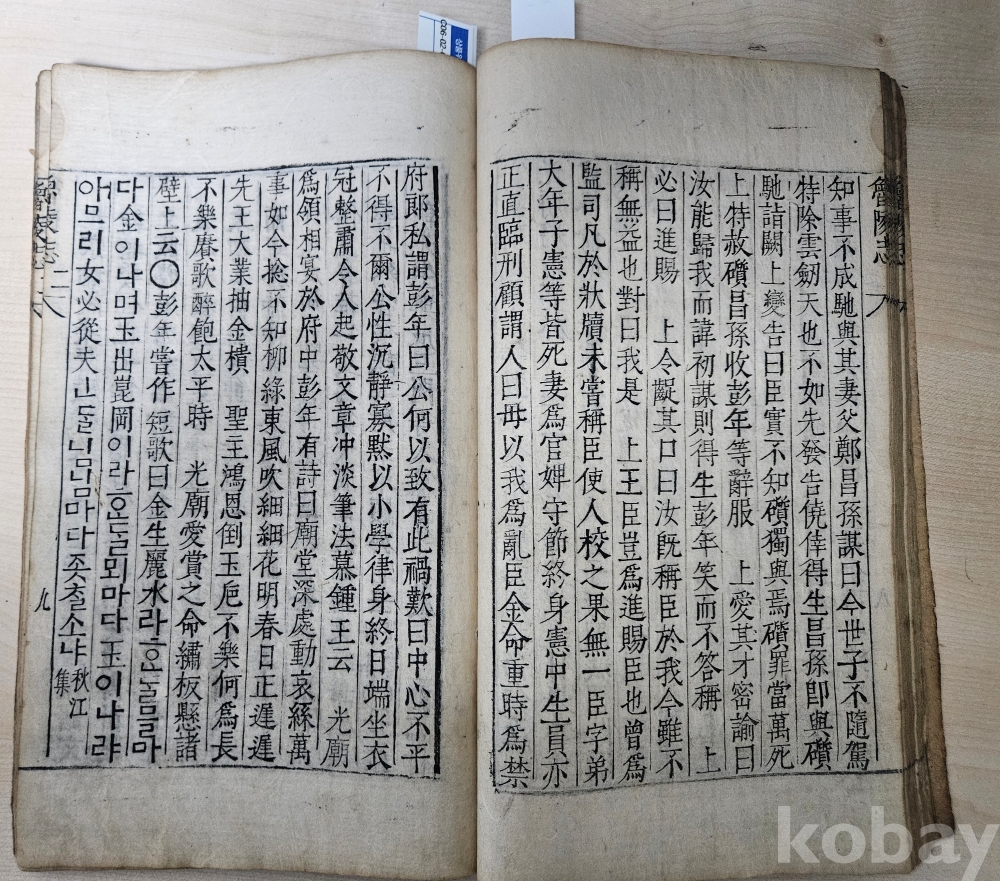 知事不成馳與其妻父鄭昌孫謀曰今世子不隨駕
特除雲劒天也不如先發告僥倖得生昌孫卽與礩
馳詣闕上變告曰臣實不知礩獨與焉礩罪當萬死
上特赦礩昌孫收彭年等辭服 上愛其才密諭曰
汝能歸我而諱初謀則得生彭年笑而不答稱 上
必曰進賜 上令齪其口曰汝旣稱臣於我今雖不
稱無益也對曰我是 上王臣豈爲進賜臣也曾爲
監司凡於狀牘未嘗稱臣使人校之果無一臣字弟
大年子憲等皆死妻爲官婢守節終身憲中生員亦
正直臨刑顧謂人曰毋以我爲亂臣金命重時爲禁
府郞私謂彭年曰公何以致有此禍歎曰中心不平
不得不爾公性沉靜寡默以小學律身終日端坐衣
冠整肅令人起敬文章冲淡筆法慕鍾王云 光廟
爲領相宴於府中彭年有詩曰廟堂深處動哀絲萬
事如今捴不知柳綠東風吹細細花明春日正遲遲
先王大業抽金樻 聖主鴻恩倒玉巵不樂何爲長
不樂賡歌醉飽太平時 光廟愛賞之命繡板懸諸
壁上云〇彭年嘗作短歌曰金生麗水라ᄒᆞᆫᄃᆞᆯ믈마
다金이나며玉出崑岡이라ᄒᆞᆫᄃᆞᆯ뫼마다玉이나랴
암므리女必從夫ㄴᄃᆞᆯ님님마다좃ᄎᆞᆯ소냐 秋江集
魯陵志 二
九
kobay